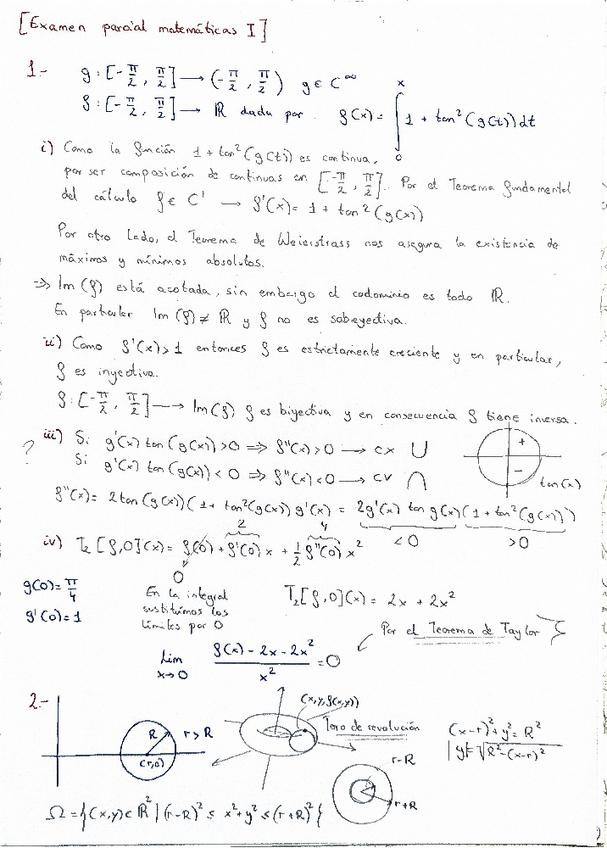 [Examen parcial matemáticas I]
1.- g: [-π/2, π/2] → (-π/2, π/2) g ∈ C^∞
f: [-π/2, π/2] → ℝ dada por f(x) = ∫_0^x 1 + tan²(g(t)) dt
i) Como la función 1 + tan²(g(t)) es continua,
por ser composición de continuas en [-π/2, π/2]. Por el Teorema fundamental
del cálculo f ∈ C' → f'(x) = 1 + tan²(g(x))
Por otro lado, el Teorema de Weierstrass nos asegura la existencia de
máximos y mínimos absolutos.
⇒ Im(f) está acotada, sin embargo el codominio es todo ℝ.
En particular Im(f) ≠ ℝ y f no es sobeyectiva.
ii) Como f'(x) > 1 entonces f es estrictamente creciente y en particular,
f es inyectiva.
f: [-π/2, π/2] → Im(f), f es biyectiva y en consecuencia f tiene inversa.
? iii) Si g'(x) tan(g(x)) > 0 ⇒ f''(x) > 0 → cx ∪
Si g'(x) tan(g(x)) < 0 ⇒ f''(x) < 0 → cv ∩
+
-
tan(x)
f''(x) = 2 tan(g(x))(1 + tan²(g(x))) g'(x) = 2g'(x) tan g(x)(1 + tan²(g(x)))
< 0 > 0
iv) T₂[f,0](x) = f(0) + f'(0) x + 1/2 f''(0) x²
2 4
0
g(0) = π/4
g'(0) = 1
En la integral
sustituimos los
límites por 0
T₂[f,0](x) = 2x + 2x²
Por el Teorema de Taylor
Lim x→0 (f(x) - 2x - 2x²)/x² = 0
2.-
R r > R
(r,0)
(x,y,f(x,y))
Toro de revolución
(x-r)² + y² = R²
|y| = √(R² - (x-r)²)
r-R
r+R
Ω = {(x,y) ∈ ℝ² | (r-R)² ≤ x² + y² ≤ (r+R)²}